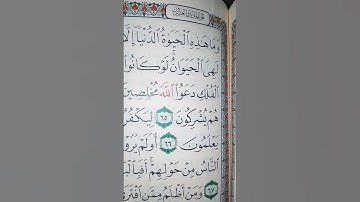 وَمَا هَٰذِهِ ٱلْحَيَوٰةُ ٱلدُّنْيَآ إِلَّا
لَهِىَ ٱلْحَيَوَانُ لَوْ كَانُوا۟
ٱلْفُلْكِ دَعَوُا۟ ٱللَّهَ مُخْلِصِينَ
هُمْ يُشْرِكُونَ ٦٥ لِيَكْفُرُ
يَعْلَمُونَ ٦٦ أَوَلَمْ يَرَوْ
ٱلنَّاسُ مِنْ حَوْلِهِمْ أَفَبِٱلْبَ
٦٧ وَمَنْ أَظْلَمُ مِمَّنِ ٱفْتَرَ